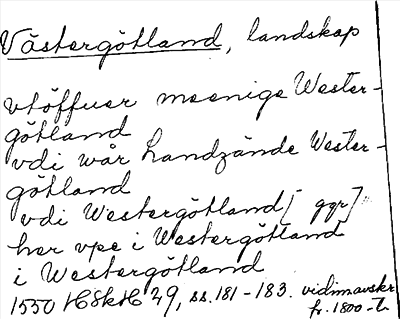 Västergötland, landskap
vtöffuer meenige Wester-
götland
vdi wår Landzände Wester-
götland
vdi Westergötland [ggr]
her vpe i Westergötland
i Westergötland
1550 HSkH 29, ss. 181-183. vidimavskr.
fr. 1800-t.